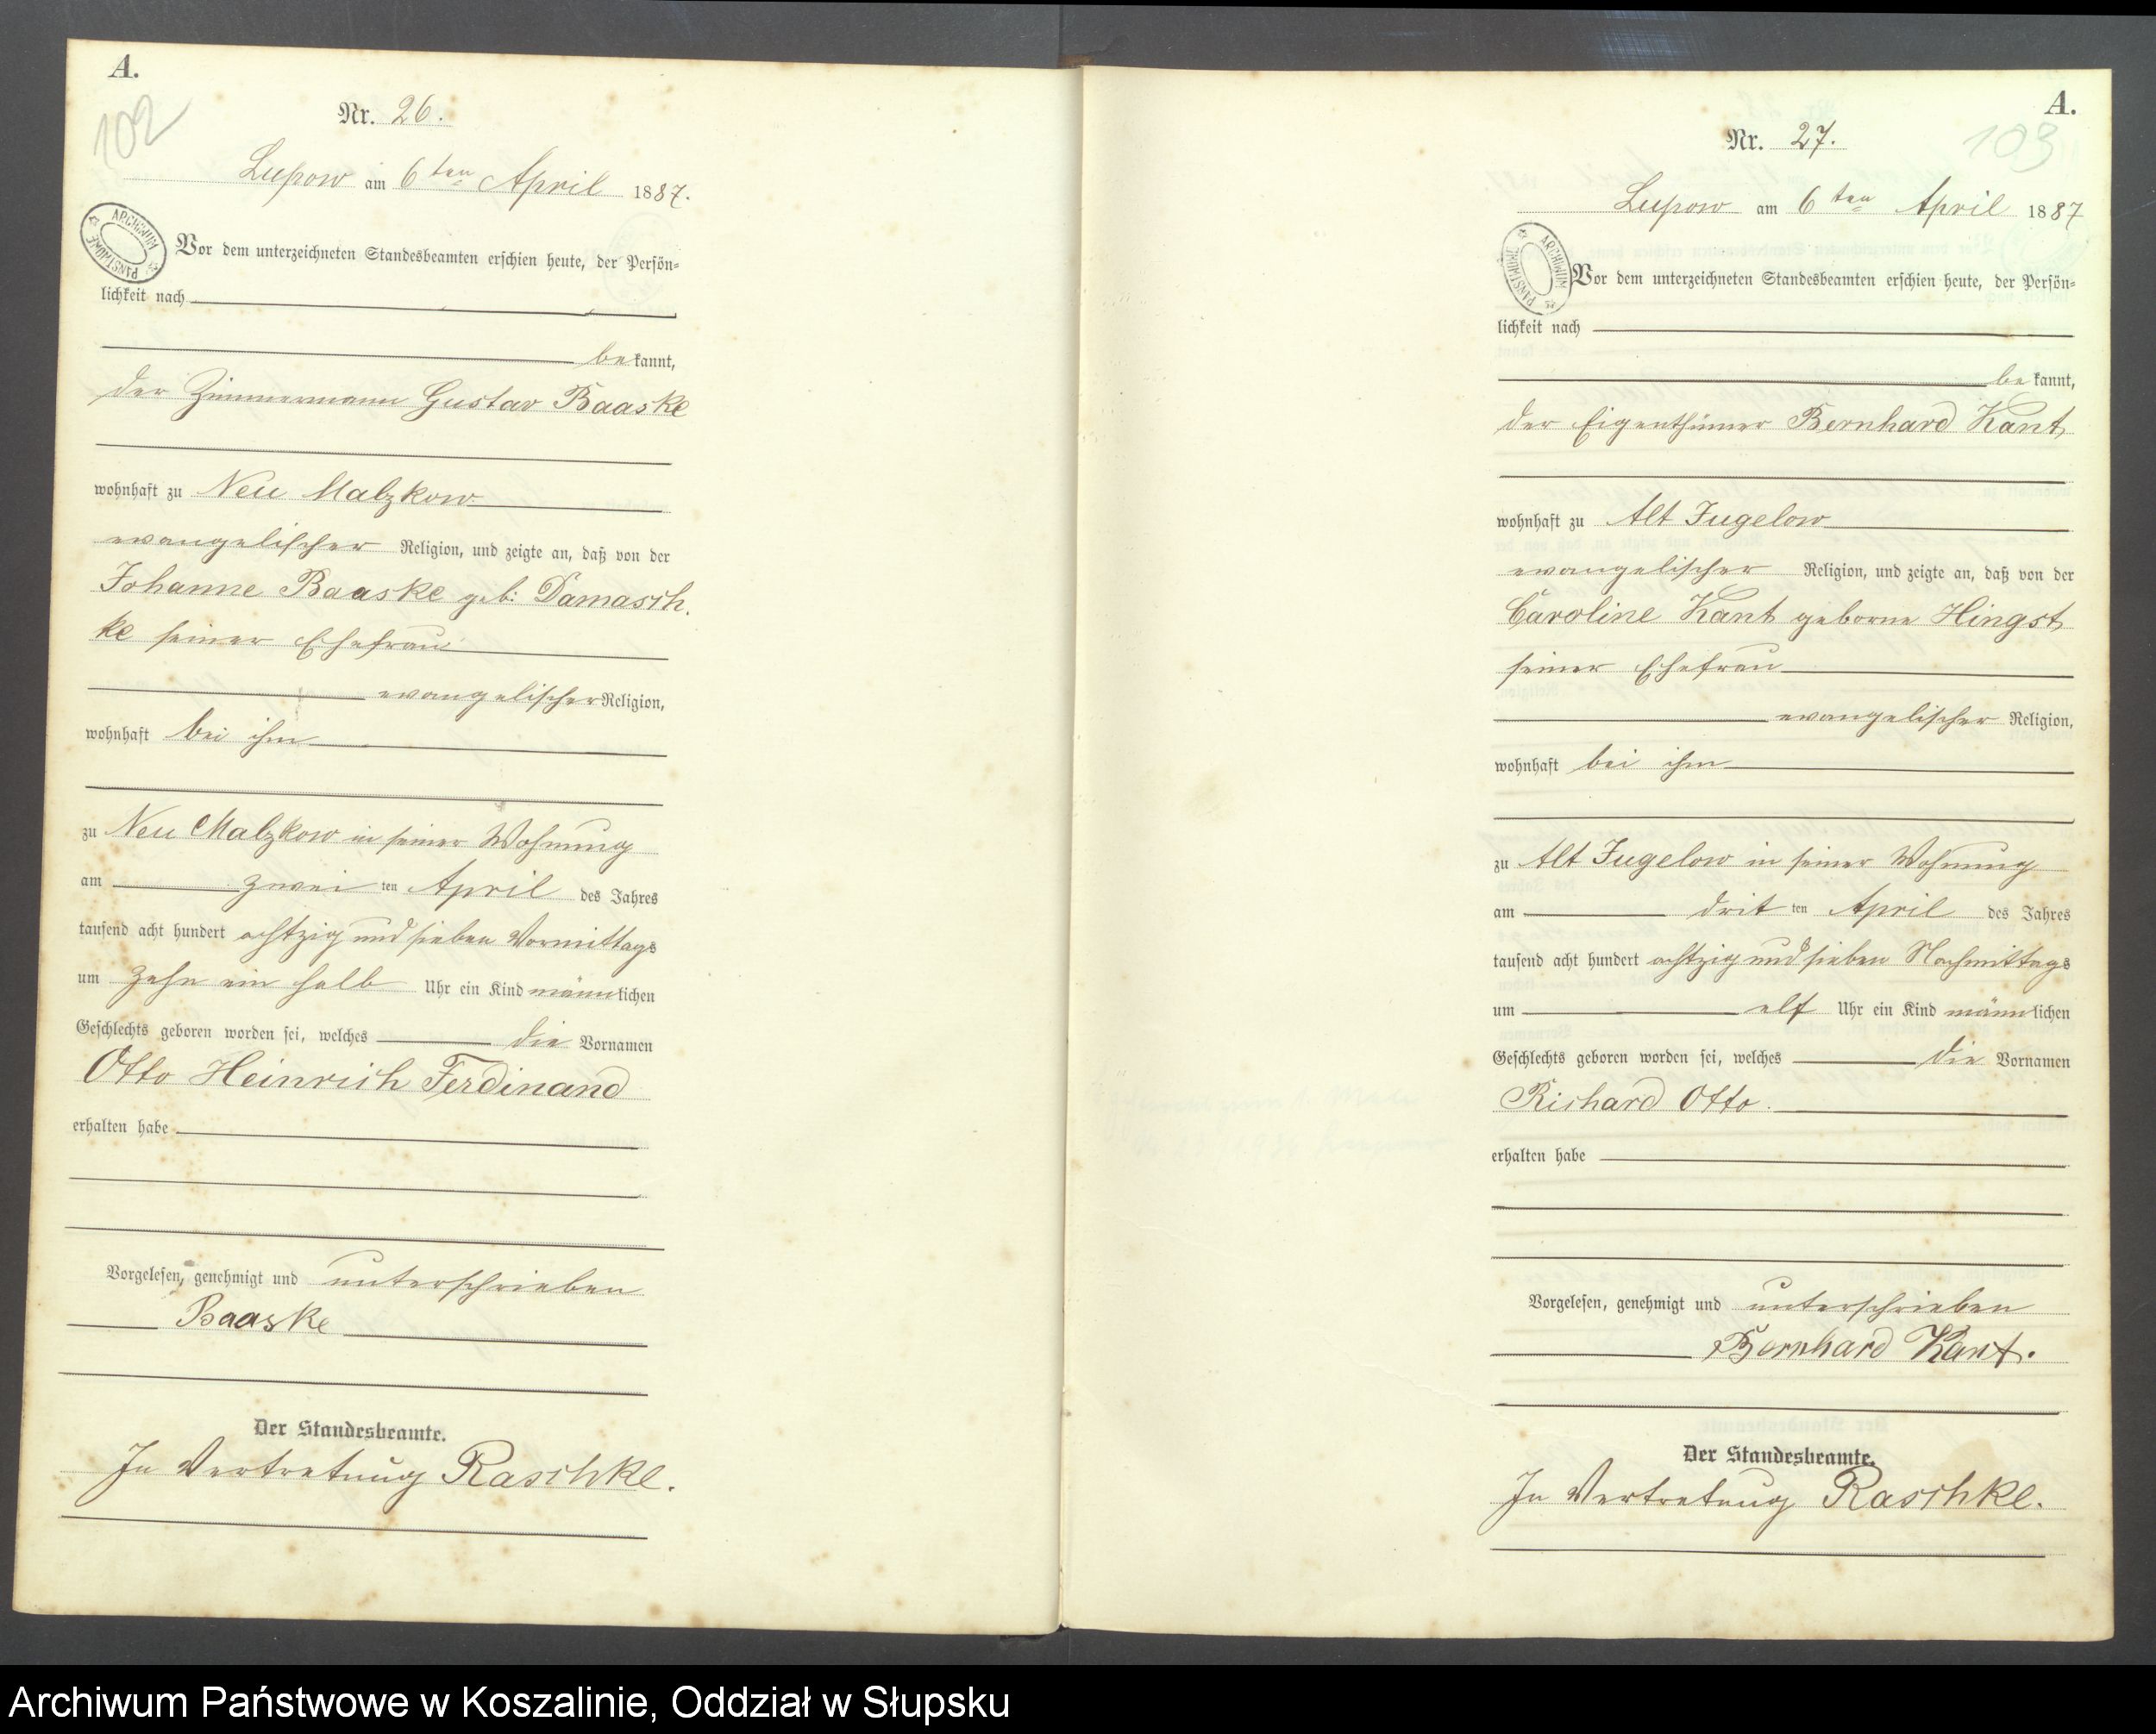 A.
102
Nr. 26.
Lupow am 6ten April 1887.
ARCHIWUM PAŃSTWOWE
Vor dem unterzeichneten Standesbeamten erschien heute, der Persön=
lichkeit nach
bekannt,
der Zimmermann Gustav Baaske
wohnhaft zu Neu Malzkow
evangelischer Religion, und zeigte an, daß von der
Johanne Baaske geb: Damasch.
ke seiner Ehefrau
evangelischer Religion,
wohnhaft bei ihm
zu Neu Malzkow in seiner Wohnung
am zwei ten April des Jahres
tausend acht hundert achtzig und sieben Vormittags
um zehn ein halb Uhr ein Kind männlichen
Geschlechts geboren worden sei, welches die Vornamen
Otto Heinrich Ferdinand
erhalten habe
Vorgelesen, genehmigt und unterschrieben
Baaske
Der Standesbeamte.
In Vertretung Raschke.
A.
103
Nr. 27.
Lupow am 6ten April 1887
ARCHIWUM PAŃSTWOWE
Vor dem unterzeichneten Standesbeamten erschien heute, der Persön=
lichkeit nach
bekannt,
der Eigenthümer Bernhard Kant
wohnhaft zu Alt Jugelow
evangelischer Religion, und zeigte an, daß von der
Caroline Kant geborne Hingst
seiner Ehefrau
evangelischer Religion,
wohnhaft bei ihm
zu Alt Jugelow in seiner Wohnung
am drit ten April des Jahres
tausend acht hundert achtzig und sieben Nachmittags
um elf Uhr ein Kind männlichen
Geschlechts geboren worden sei, welches die Vornamen
Richard Otto.
erhalten habe
Vorgelesen, genehmigt und unterschrieben
Bernhard Kant.
Der Standesbeamte.
In Vertretung Raschke.
Archiwum Państwowe w Koszalinie, Oddział w Słupsku